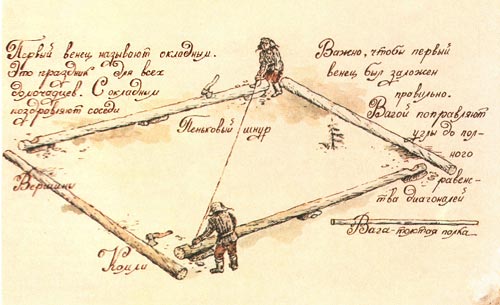 Первый венец называют окладным.
Это праздник для всех
домочадцев. С окладным
поздравляют соседи
Важно, чтобы первый
венец был заложен
правильно.
Вагой поправляют
углы до пол-
ного
равен-
ства диагоналей
Пеньковый шнур
Вершины
Комли
Вага-толстая палка